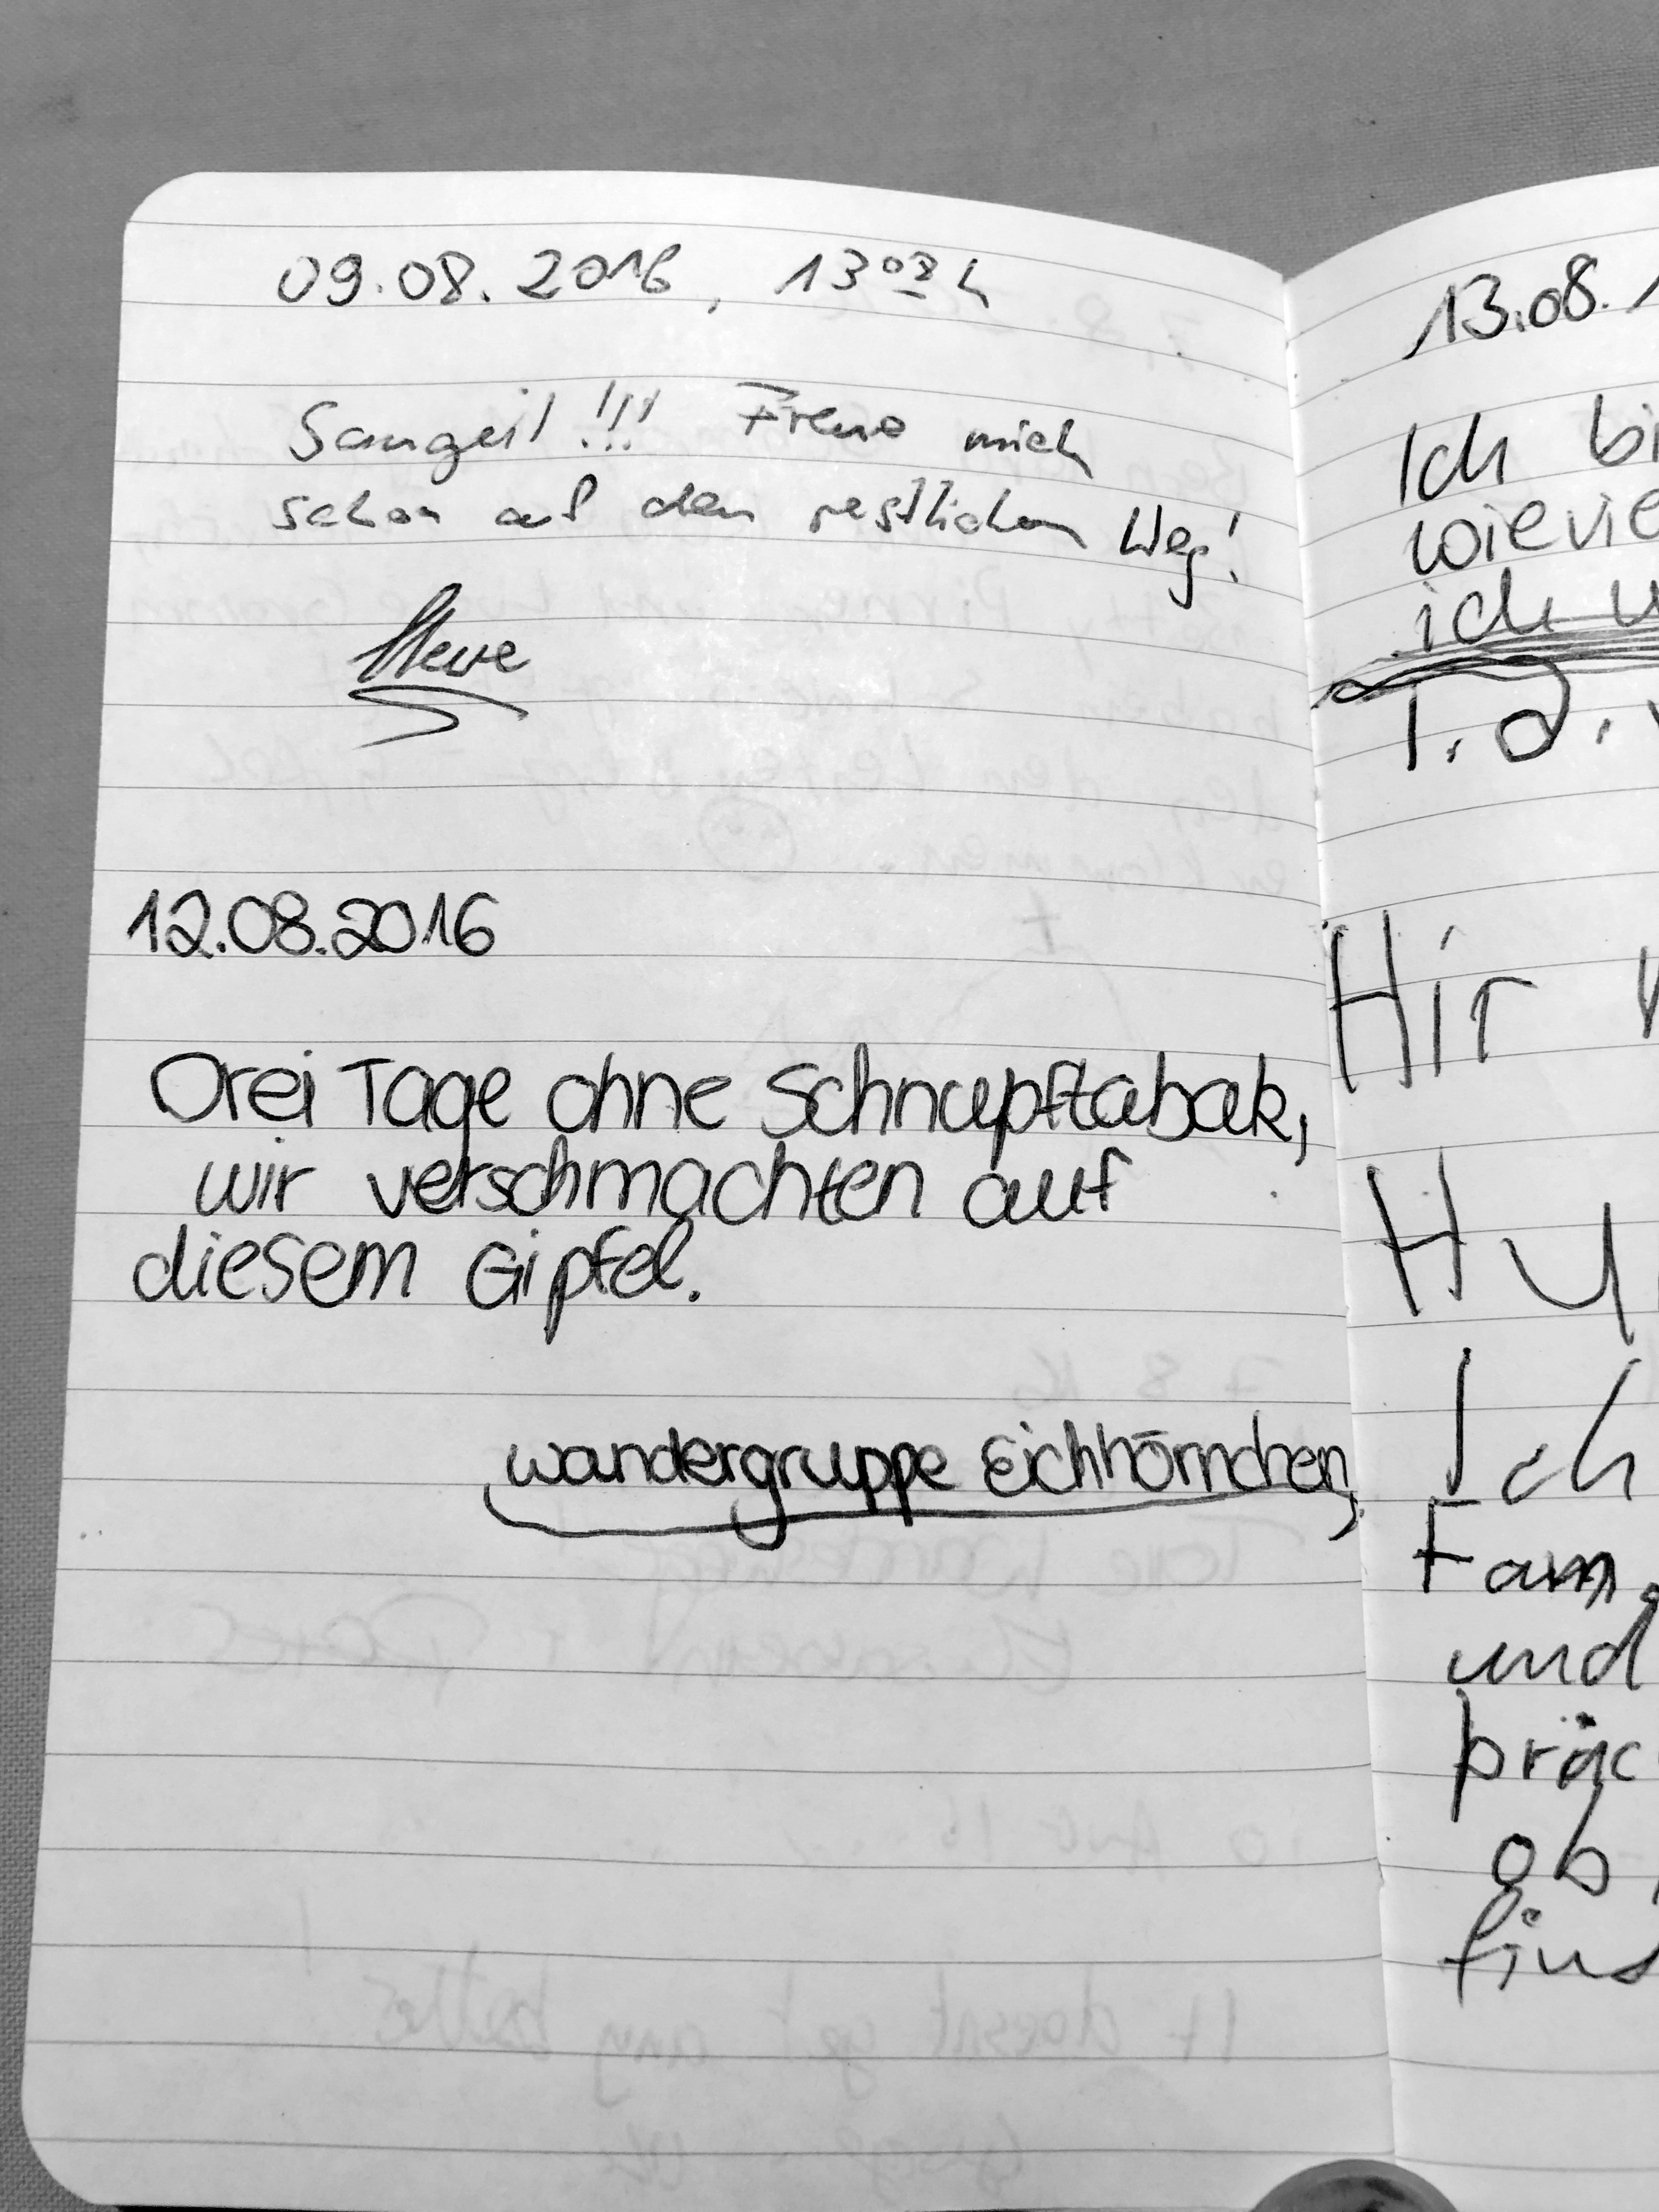 09.08.2016, 13⁰⁸ h
Saugeil!!! Freue mich
schon auf den restlichen Weg!
Steve
12.08.2016
Drei Tage ohne Schnupftabak,
wir verschmachten auf
diesem Gipfel.
Wandergruppe Eichhörnchen,
13.08.
Ich bi
wievie
ich
T.d.
Hir
Hu
Ich
Fam.
und
präc
ob
find